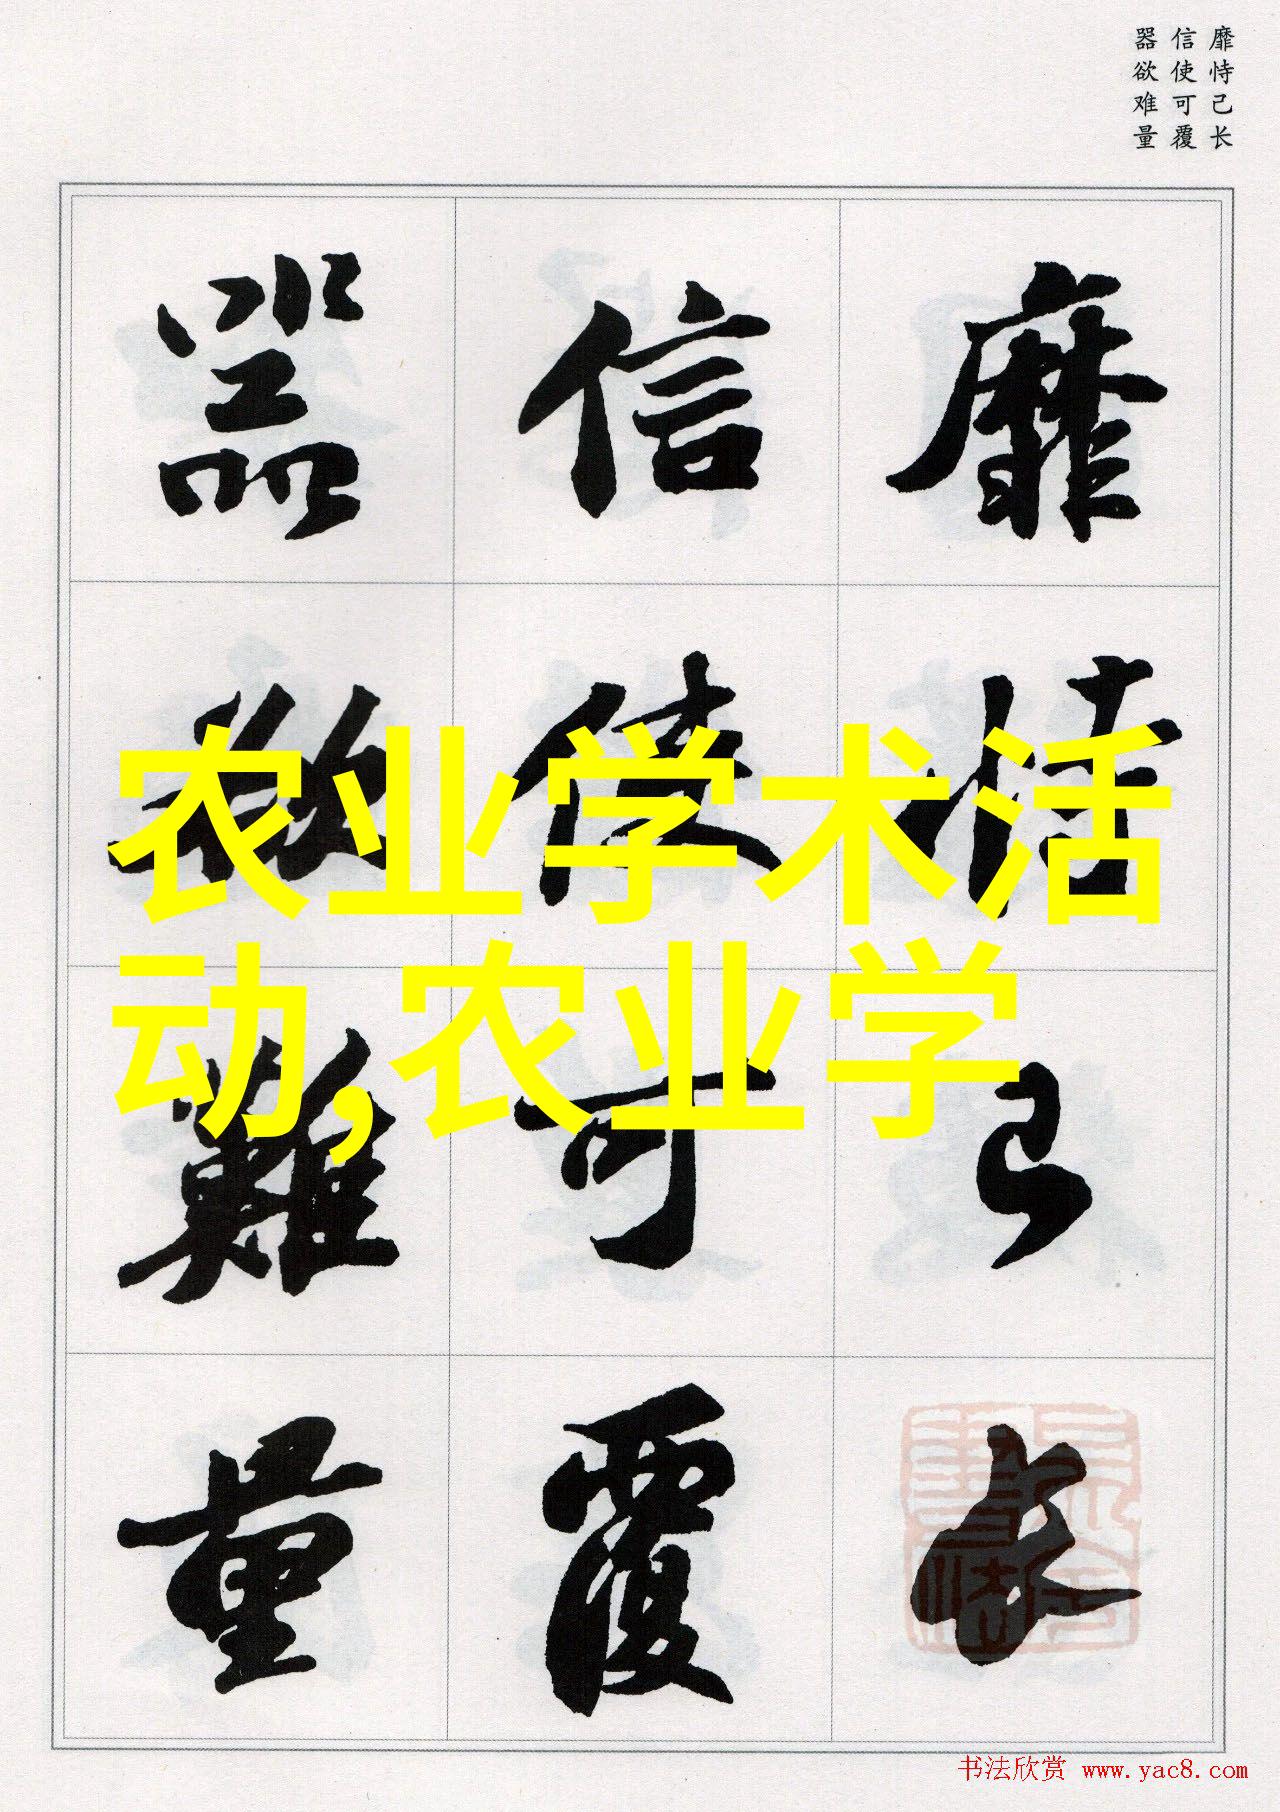 靡恃己长
信使可覆
器欲难量
靡恃己长
信使可覆
器欲難量
农业学术活
动,农业学
书法欣赏 www.yac8.com